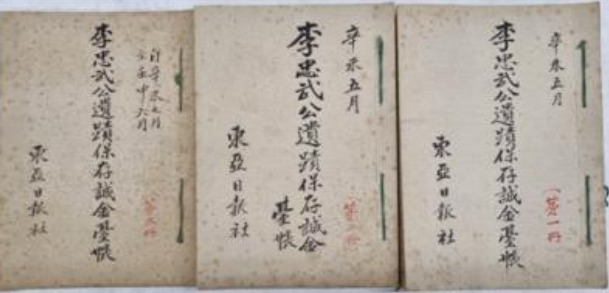 辛未五月
(第一冊
李忠武公遺蹟保存誠金臺帳
東亞日報社
辛未五月
李忠武公遺蹟保存誠金
臺帳
東亞日報社
自辛未五月
至壬申六月
李忠武公遺蹟保存誠金臺帳
東亞日報社